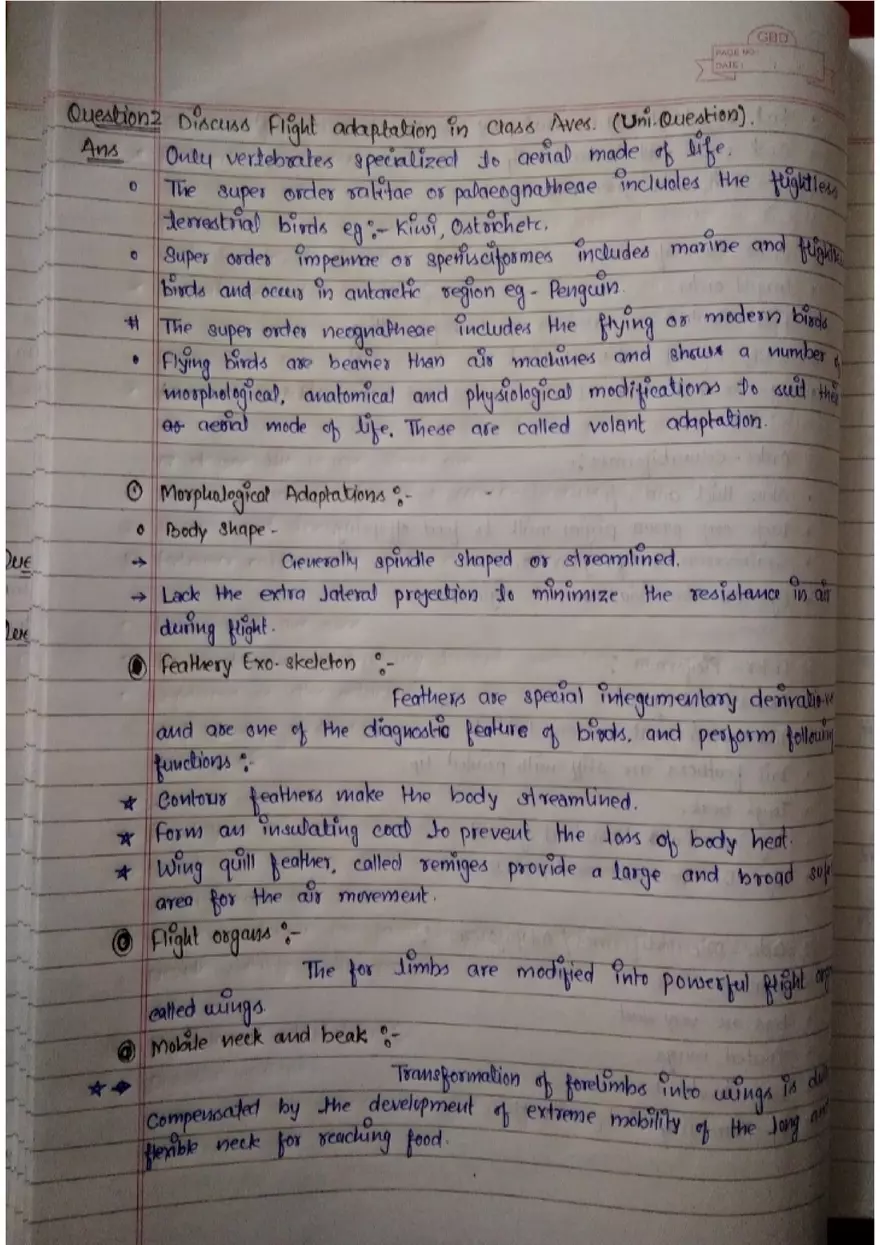 GBD
PAGE NO:
DATE:
Question 2 Discuss Flight adaptation in class Aves. (Uni. Question).
Ans Only vertebrates specialized to aerial made of life.
The super order ratitae or palaeognatheae includes the flightless
terrestrial birds eg:- Kiwi, Ostrich etc.
Super order impennae or spenisciformes includes marine and
birds and occur in antarctic region eg - Penguin.
# The super order neognatheae includes the flying or modern birds
Flying birds are beavier than air machines and shows a number
morphological, anatomical and physiological modifications to suit
aerial mode of life. These are called volant adaptation.
Morphological Adaptations :-
Body shape -
→ Generally spindle shaped or streamlined.
→ Lack the extra lateral projection to minimize the resistance in air
during flight.
Feathery Exo-skeleton :-
Feathers are special integumentary
and are one of the diagnostic feature of birds, and perform following
functions :-
★ Contour feathers make the body streamlined.
★ Form an insulating coat to prevent the loss of body heat.
★ Wing quill feather, called remiges provide a large and broad
area for the air movement.
Flight organs :-
The for limbs are modified into powerful flight
called wings.
Mobile neck and beak :-
Transformation of forelimbs into wings is
compensated by the development of extreme mobility of the long
flexible neck for reaching food.